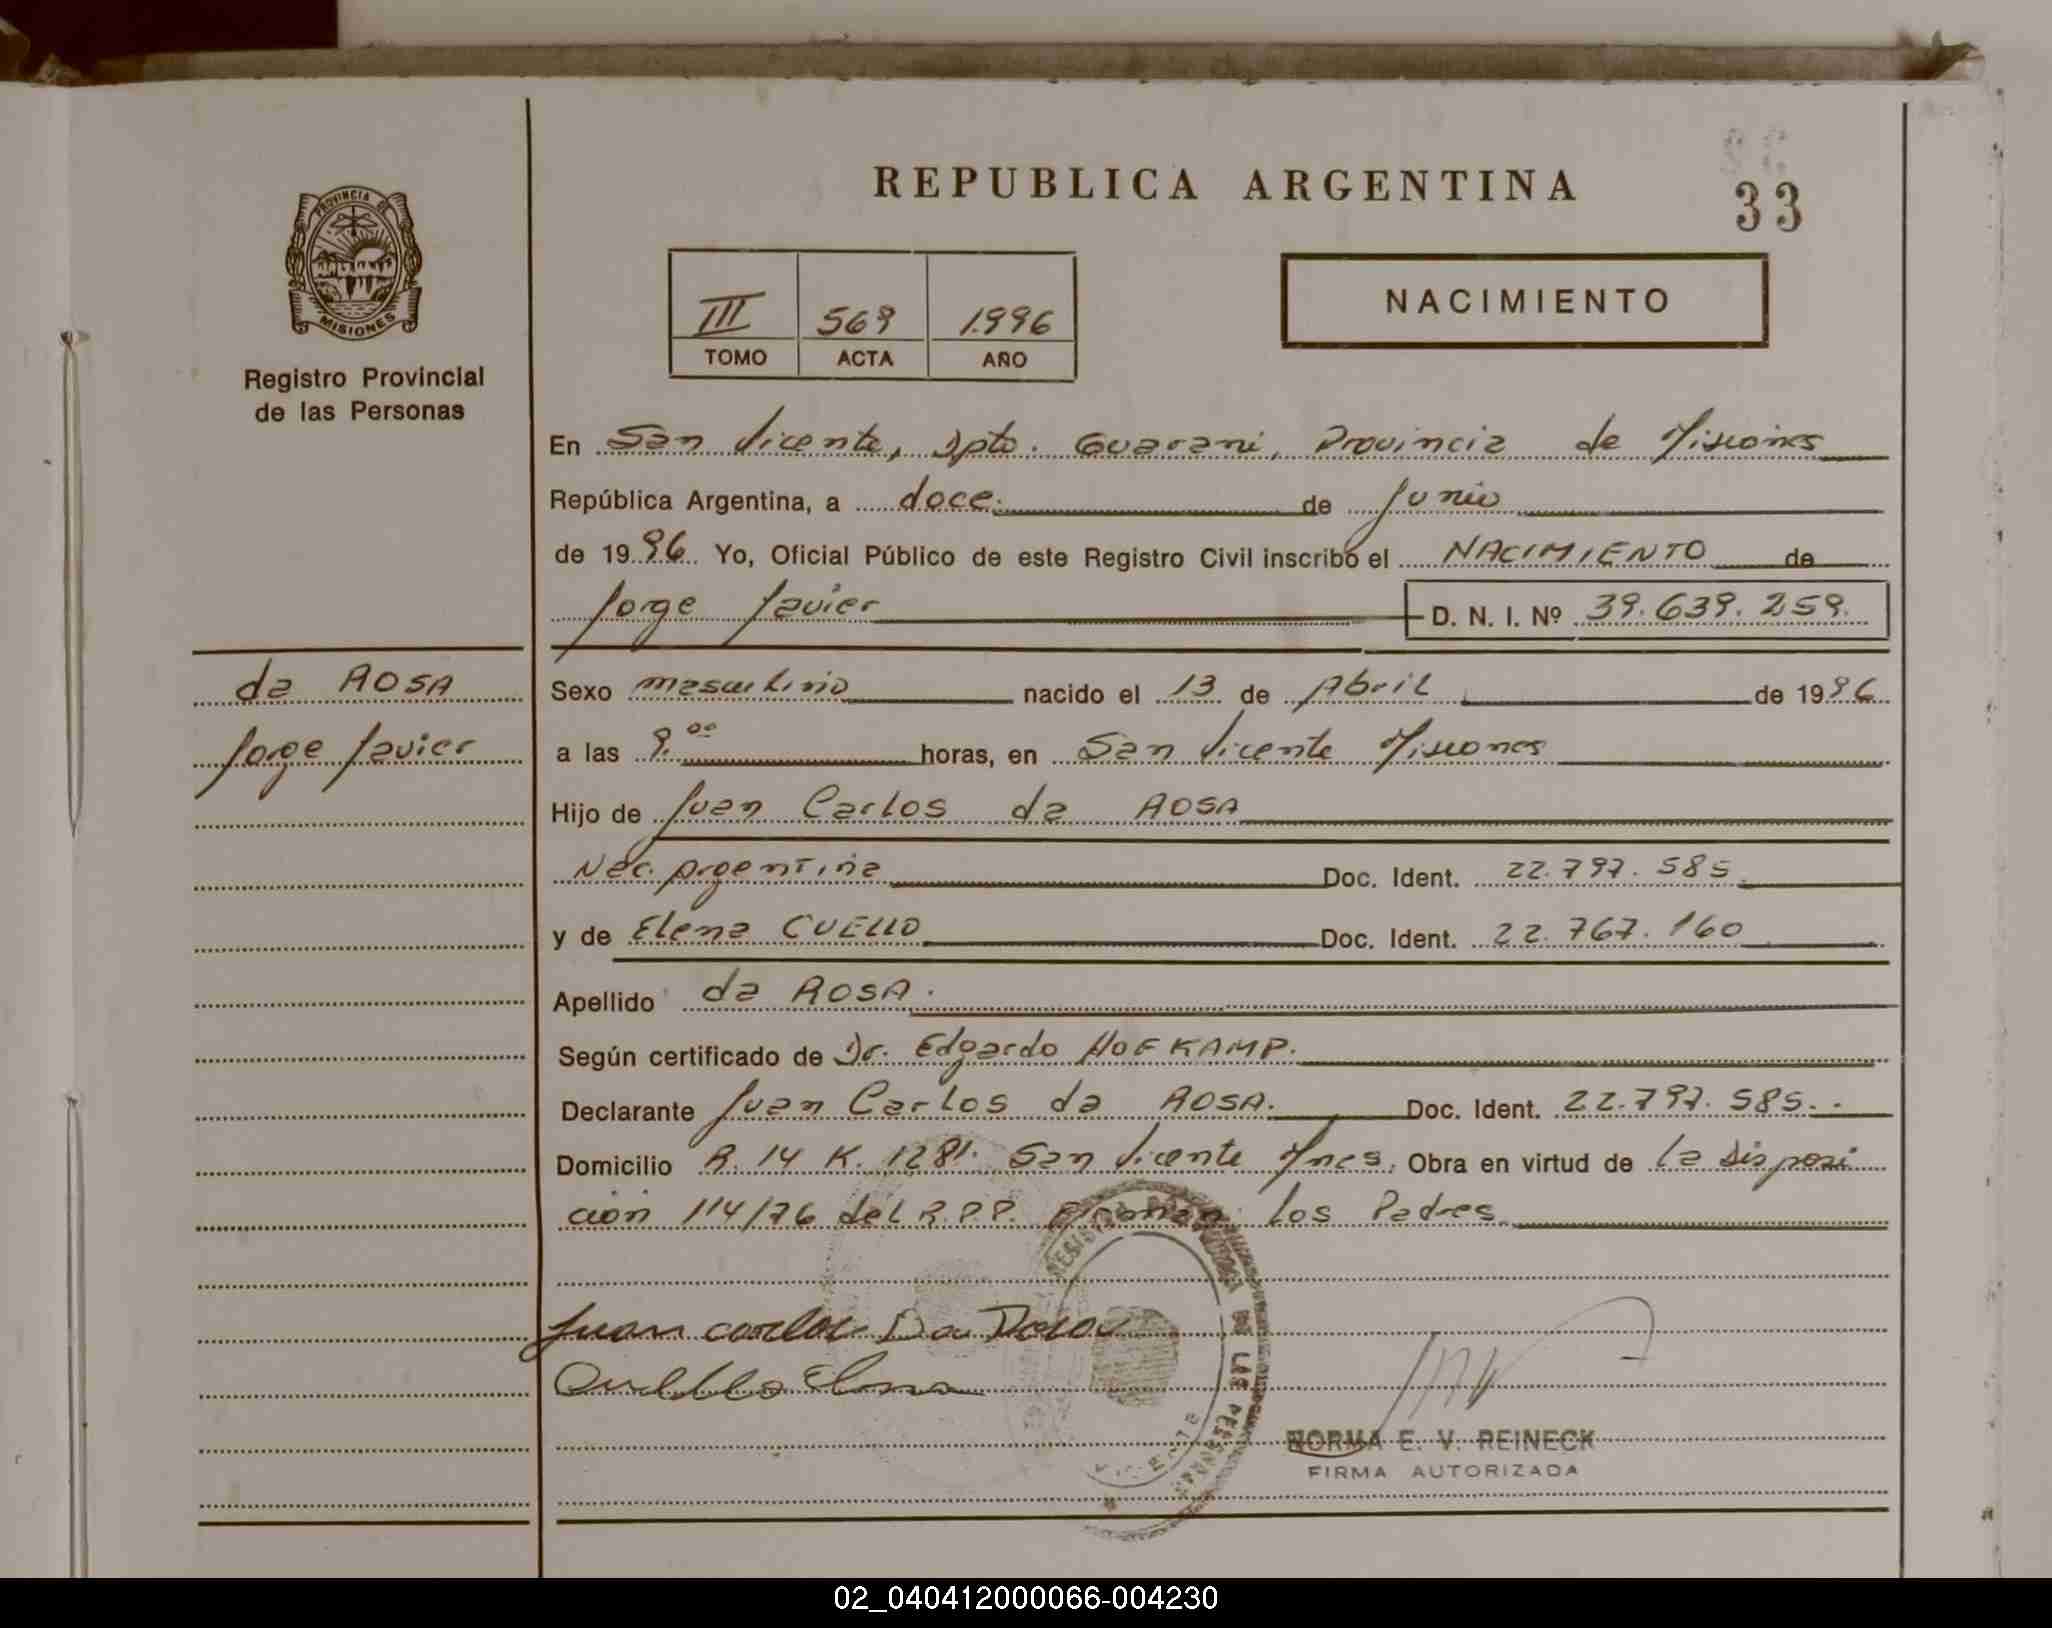 REPUBLICA ARGENTINA
33
PROVINCIA DE
MISIONES
Registro Provincial
de las Personas
III 569 1.996
TOMO ACTA AÑO
NACIMIENTO
En San Vicente, Dpto. Guarani, Provincia de Misiones
República Argentina, a doce de Junio
de 1996 Yo, Oficial Público de este Registro Civil inscribo el NACIMIENTO de
Jorge Javier D. N. I. Nº 39.639.259.
da ROSA
Jorge Javier
Sexo masculino nacido el 13 de Abril de 1996
a las 9.00 horas, en San Vicente Misiones
Hijo de Juan Carlos da ROSA
Nac. Argentina Doc. Ident. 22.797.585
y de Elena CUELLO Doc. Ident. 22.767.160
Apellido da ROSA.
Según certificado de Dr. Edgardo HOFKAMP.
Declarante Juan Carlos da ROSA. Doc. Ident. 22.797.585.
Domicilio R. 14 K. 1281. San Vicente Mnes. Obra en virtud de la Disposi
ción 114/76 del R.P.P. Firman los Padres.
Juan carlos Da Rosa
Cuello Elena
REGISTRO PROVINCIAL DE LAS PERSONAS
NORMA E. V. REINECK
FIRMA AUTORIZADA
02_040412000066-004230